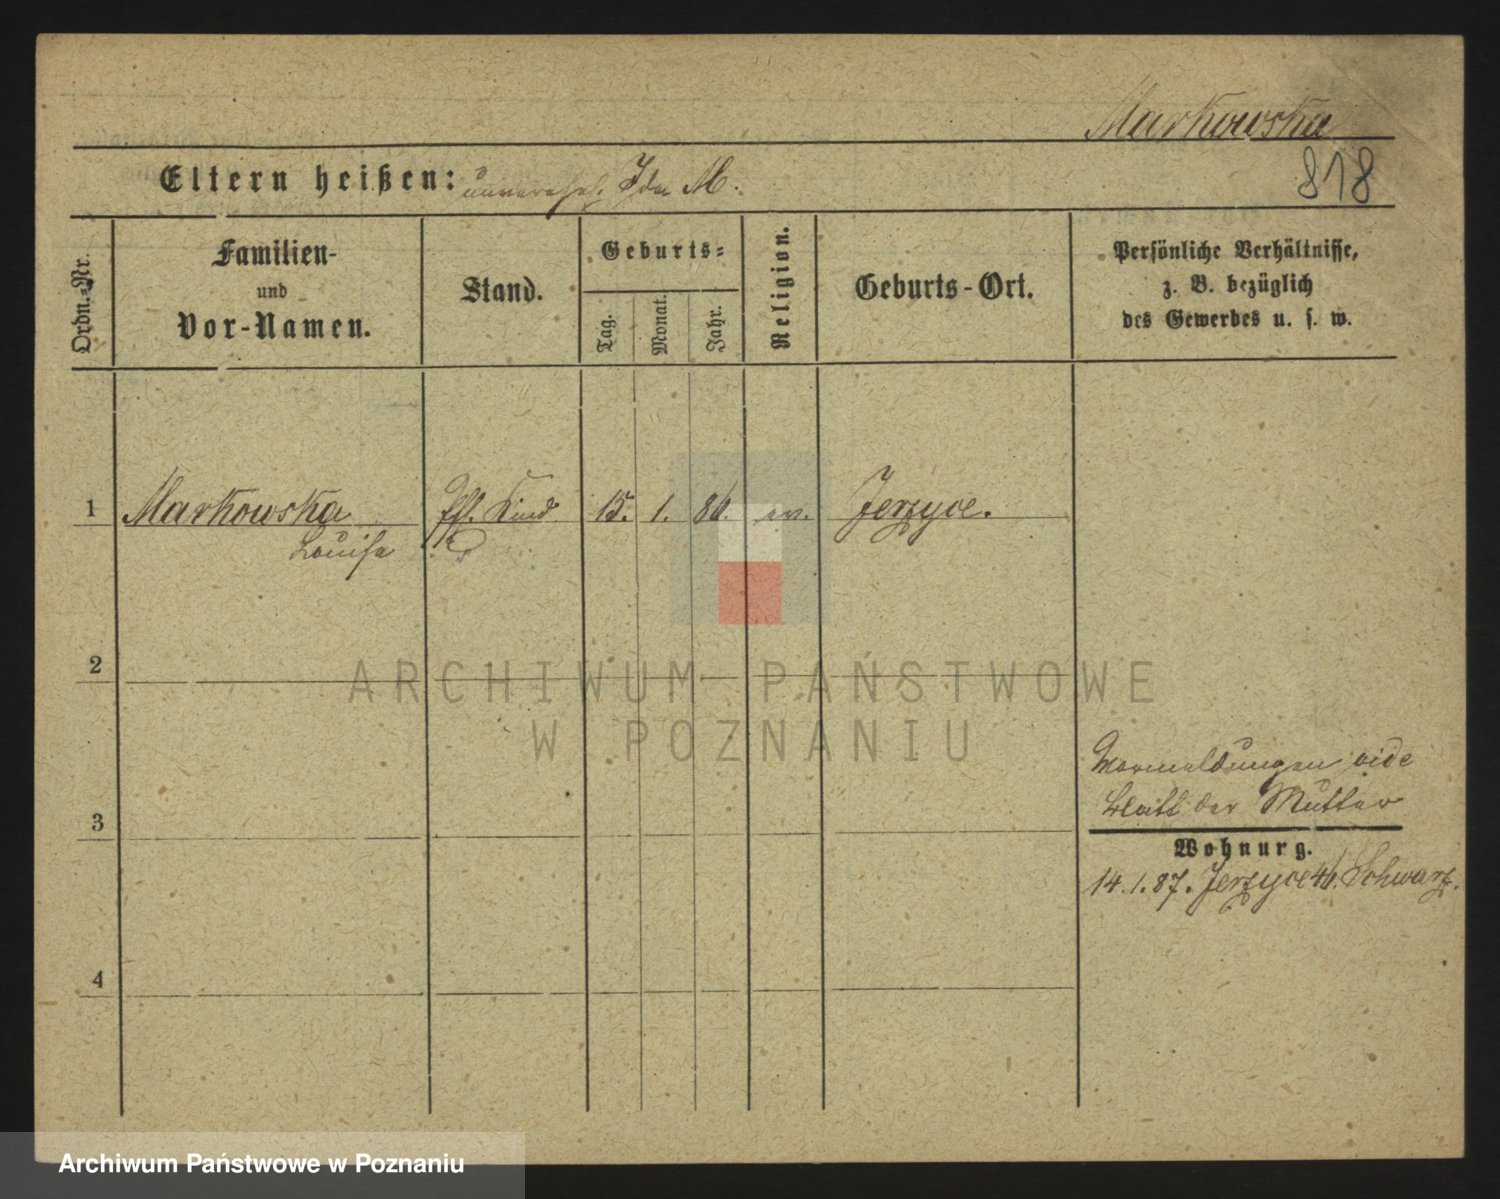 Markowska
818
Eltern heißen: unverehel. Ida M.
Ordn.-Nr.
Familien-
und
Vor-Namen.
Stand.
Geburts-
Tag.
Monat.
Jahr.
Religion.
Geburts-Ort.
Persönliche Verhältnisse,
z. B. bezüglich
des Gewerbes u. s. w.
1 Markowska Kind 15. 1. 86. ev. Jerzyce.
Louise
2
3
4
Vormeldungen vide
Blatt der Mutter
Wohnurg.
14.1.87. Jerzyce 46. Schwarz.
ARCHIWUM PAŃSTWOWE
W POZNANIU
Archiwum Państwowe w Poznaniu